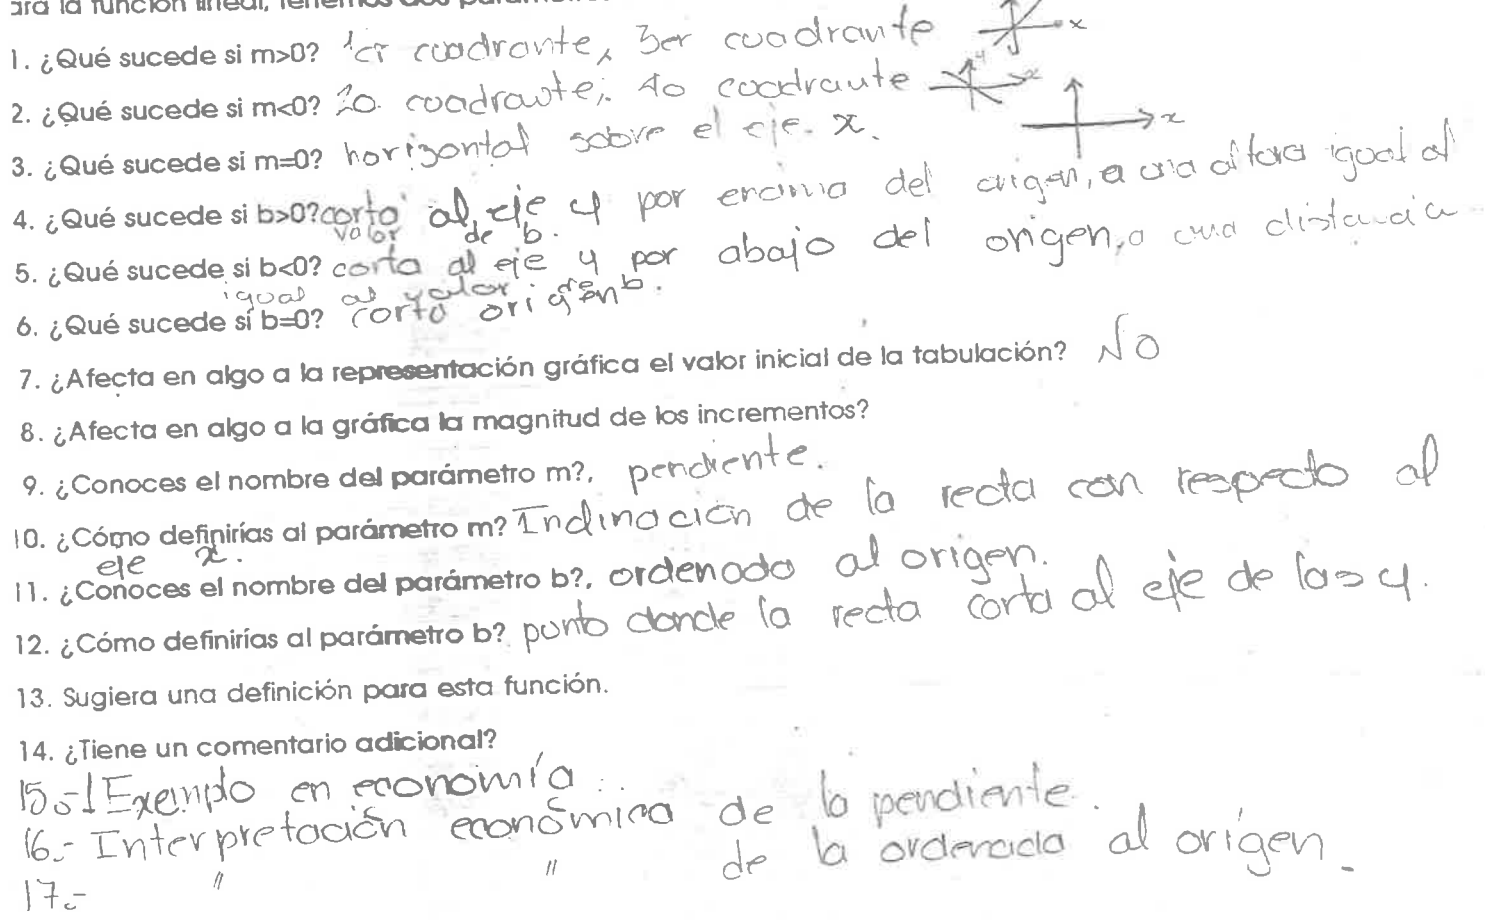 para la función lineal, tenemos dos
1. ¿Qué sucede si m>0? 1er cuadrante, 3er cuadrante x
2. ¿Qué sucede si m<0? 2o. cuadrante; 4o cuadrante y x
3. ¿Qué sucede si m=0? horizontal sobre el eje. x. x
4. ¿Qué sucede si b>0? corta al eje y por encima del origen, a una altura igual al
valor de b.
5. ¿Qué sucede si b<0? corta al eje y por abajo del origen, a una distancia
igual al valor de b.
6. ¿Qué sucede si b=0? corta origen
7. ¿Afecta en algo a la representación gráfica el valor inicial de la tabulación? No
8. ¿Afecta en algo a la gráfica la magnitud de los incrementos?
9. ¿Conoces el nombre del parámetro m?, pendiente.
10. ¿Cómo definirías al parámetro m? Inclinación de la recta con respecto al
eje x.
11. ¿Conoces el nombre del parámetro b?, ordenada al origen.
12. ¿Cómo definirías al parámetro b? punto donde la recta corta al eje de las y.
13. Sugiera una definición para esta función.
14. ¿Tiene un comentario adicional?
15.- Exemplo en economía
16.- Interpretación económica de la pendiente.
17.- " " de la ordenada al origen.